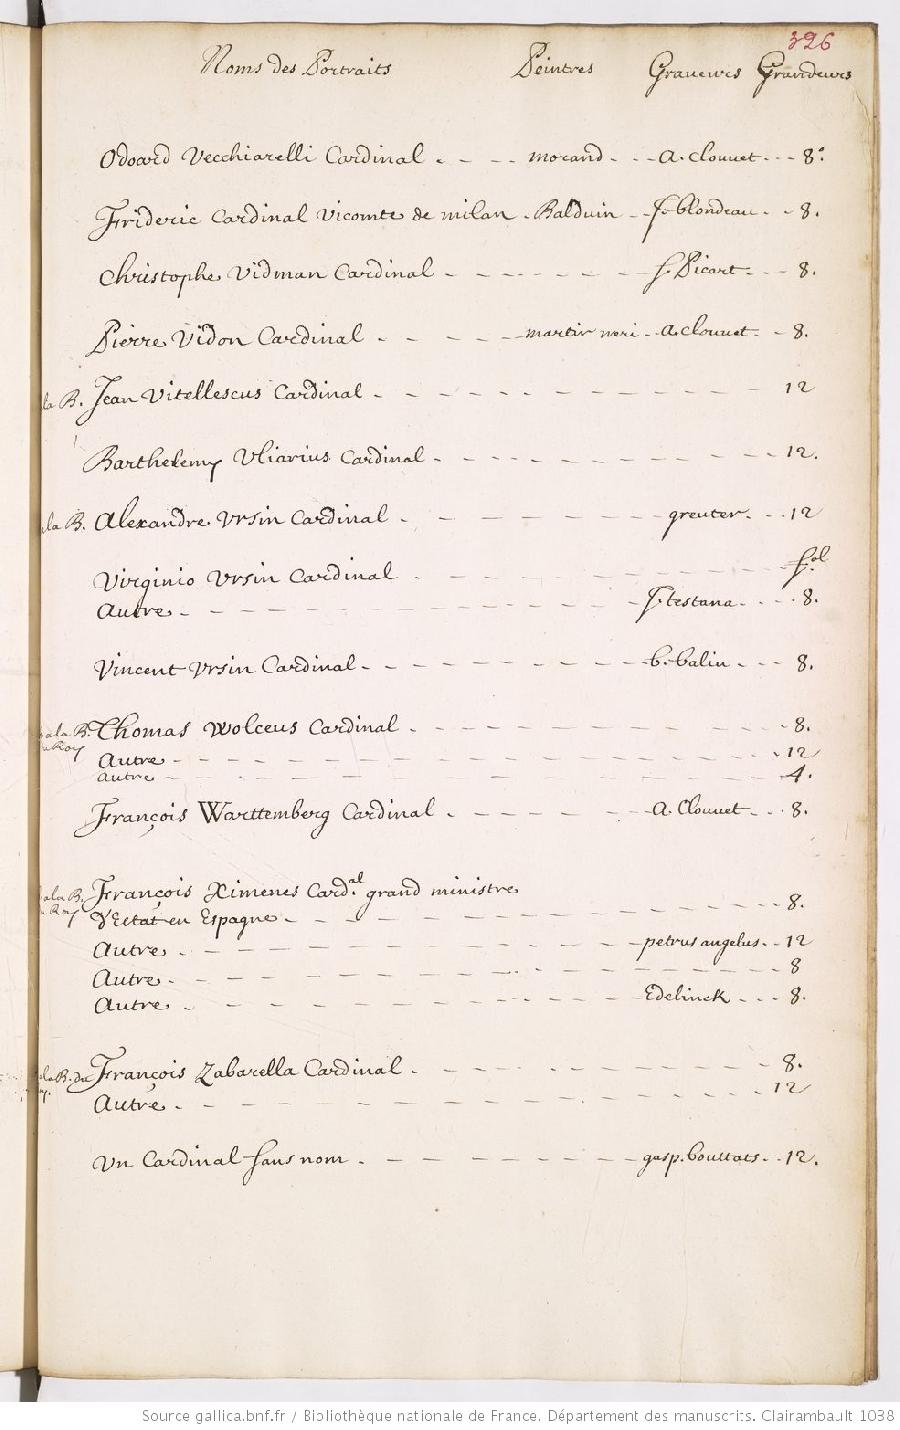 326
Noms des Portraits Peintres Graveurs Grandeurs
Odoard Vecchiarelli Cardinal . - - - . morand - - - A. Clouuet - - - 8.°
Frideric Cardinal Vicomte de milan - Balduin - - f. blondeau - - 8.
Christophe Vidman Cardinal - - - - - - - f. Picart - - - 8.
Pierre Vidon Cardinal - - - - - martin nori - A. Clouuet - - 8.
la B. Jean Vitellescus Cardinal - - - - - - - - - - 12
Barthelemy Vliarius Cardinal - - - - - - - - - - 12.
ala B. Alexandre Vrsin Cardinal - - - - - - greuter - - - 12
Virginio Vrsin Cardinal - - - - - - - - - fol.
Autre - - - - - - - - - - f. testana - - - 8.
Vincent Vrsin Cardinal - - - - - - - b. balin - - - 8.
a la B. Thomas Wolceus Cardinal - - - - - - - - - 8.
du Roy
Autre - - - - - - - - - - - - 12
autre - - - - - - - - - - - - 4.
François Warttemberg Cardinal - - - - - A. Clouuet - - - 8.
ala B. François Ximenes Card.al grand ministre
du Roy d'Estat en Espagne - - - - - - - - - - - 8.
Autre - - - - - - - - - - petrus angelus - - 12
Autre - - - - - - - - - - - - 8
Autre - - - - - - - - - - Edelinck - - - 8.
ala B. du François Zabarella Cardinal - - - - - - - - - 8.
Autre - - - - - - - - - - - - 12
Vn Cardinal sans nom - - - - - - - gasp. bouttats - - 12.
Source gallica.bnf.fr / Bibliothèque nationale de France. Département des manuscrits. Clairambault 1038